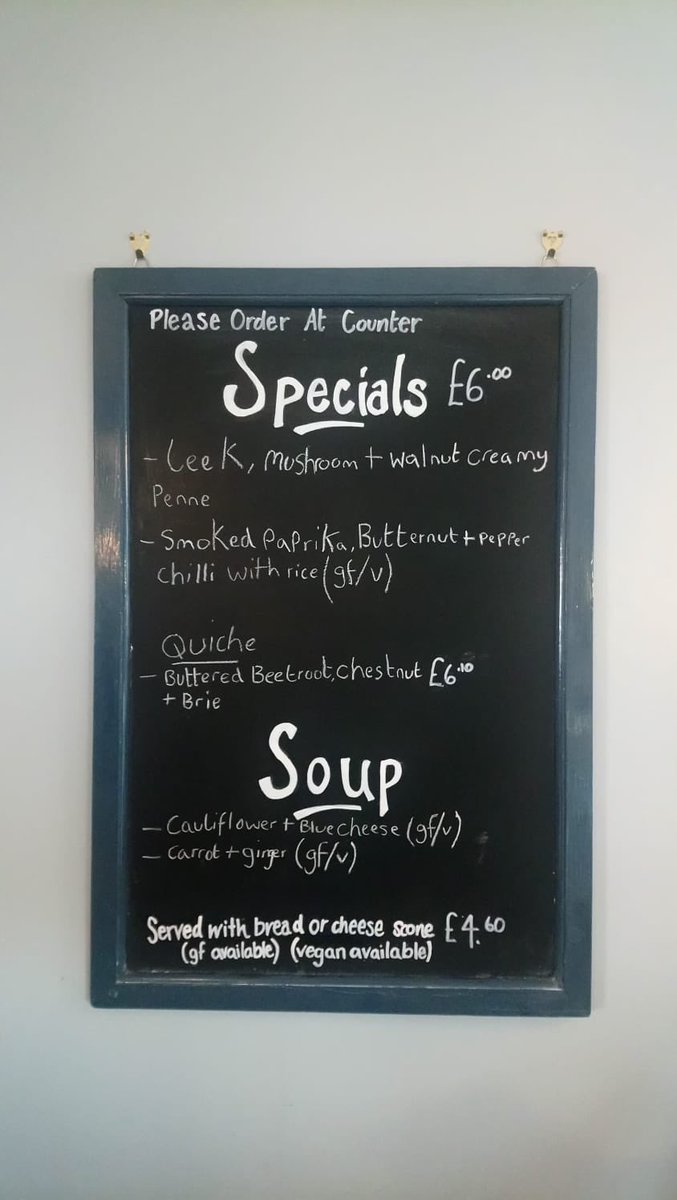 Please Order At Counter
Specials £6.00
- Leek, mushroom + walnut creamy
Penne
- Smoked Paprika, Butternut + pepper
chilli with rice (gf/v)
Quiche
- Buttered Beetroot, chestnut £6.10
+ Brie
Soup
- Cauliflower + Blue cheese (gf/v)
- Carrot + ginger (gf/v)
Served with bread or cheese scone £4.60
(gf available) (vegan available)